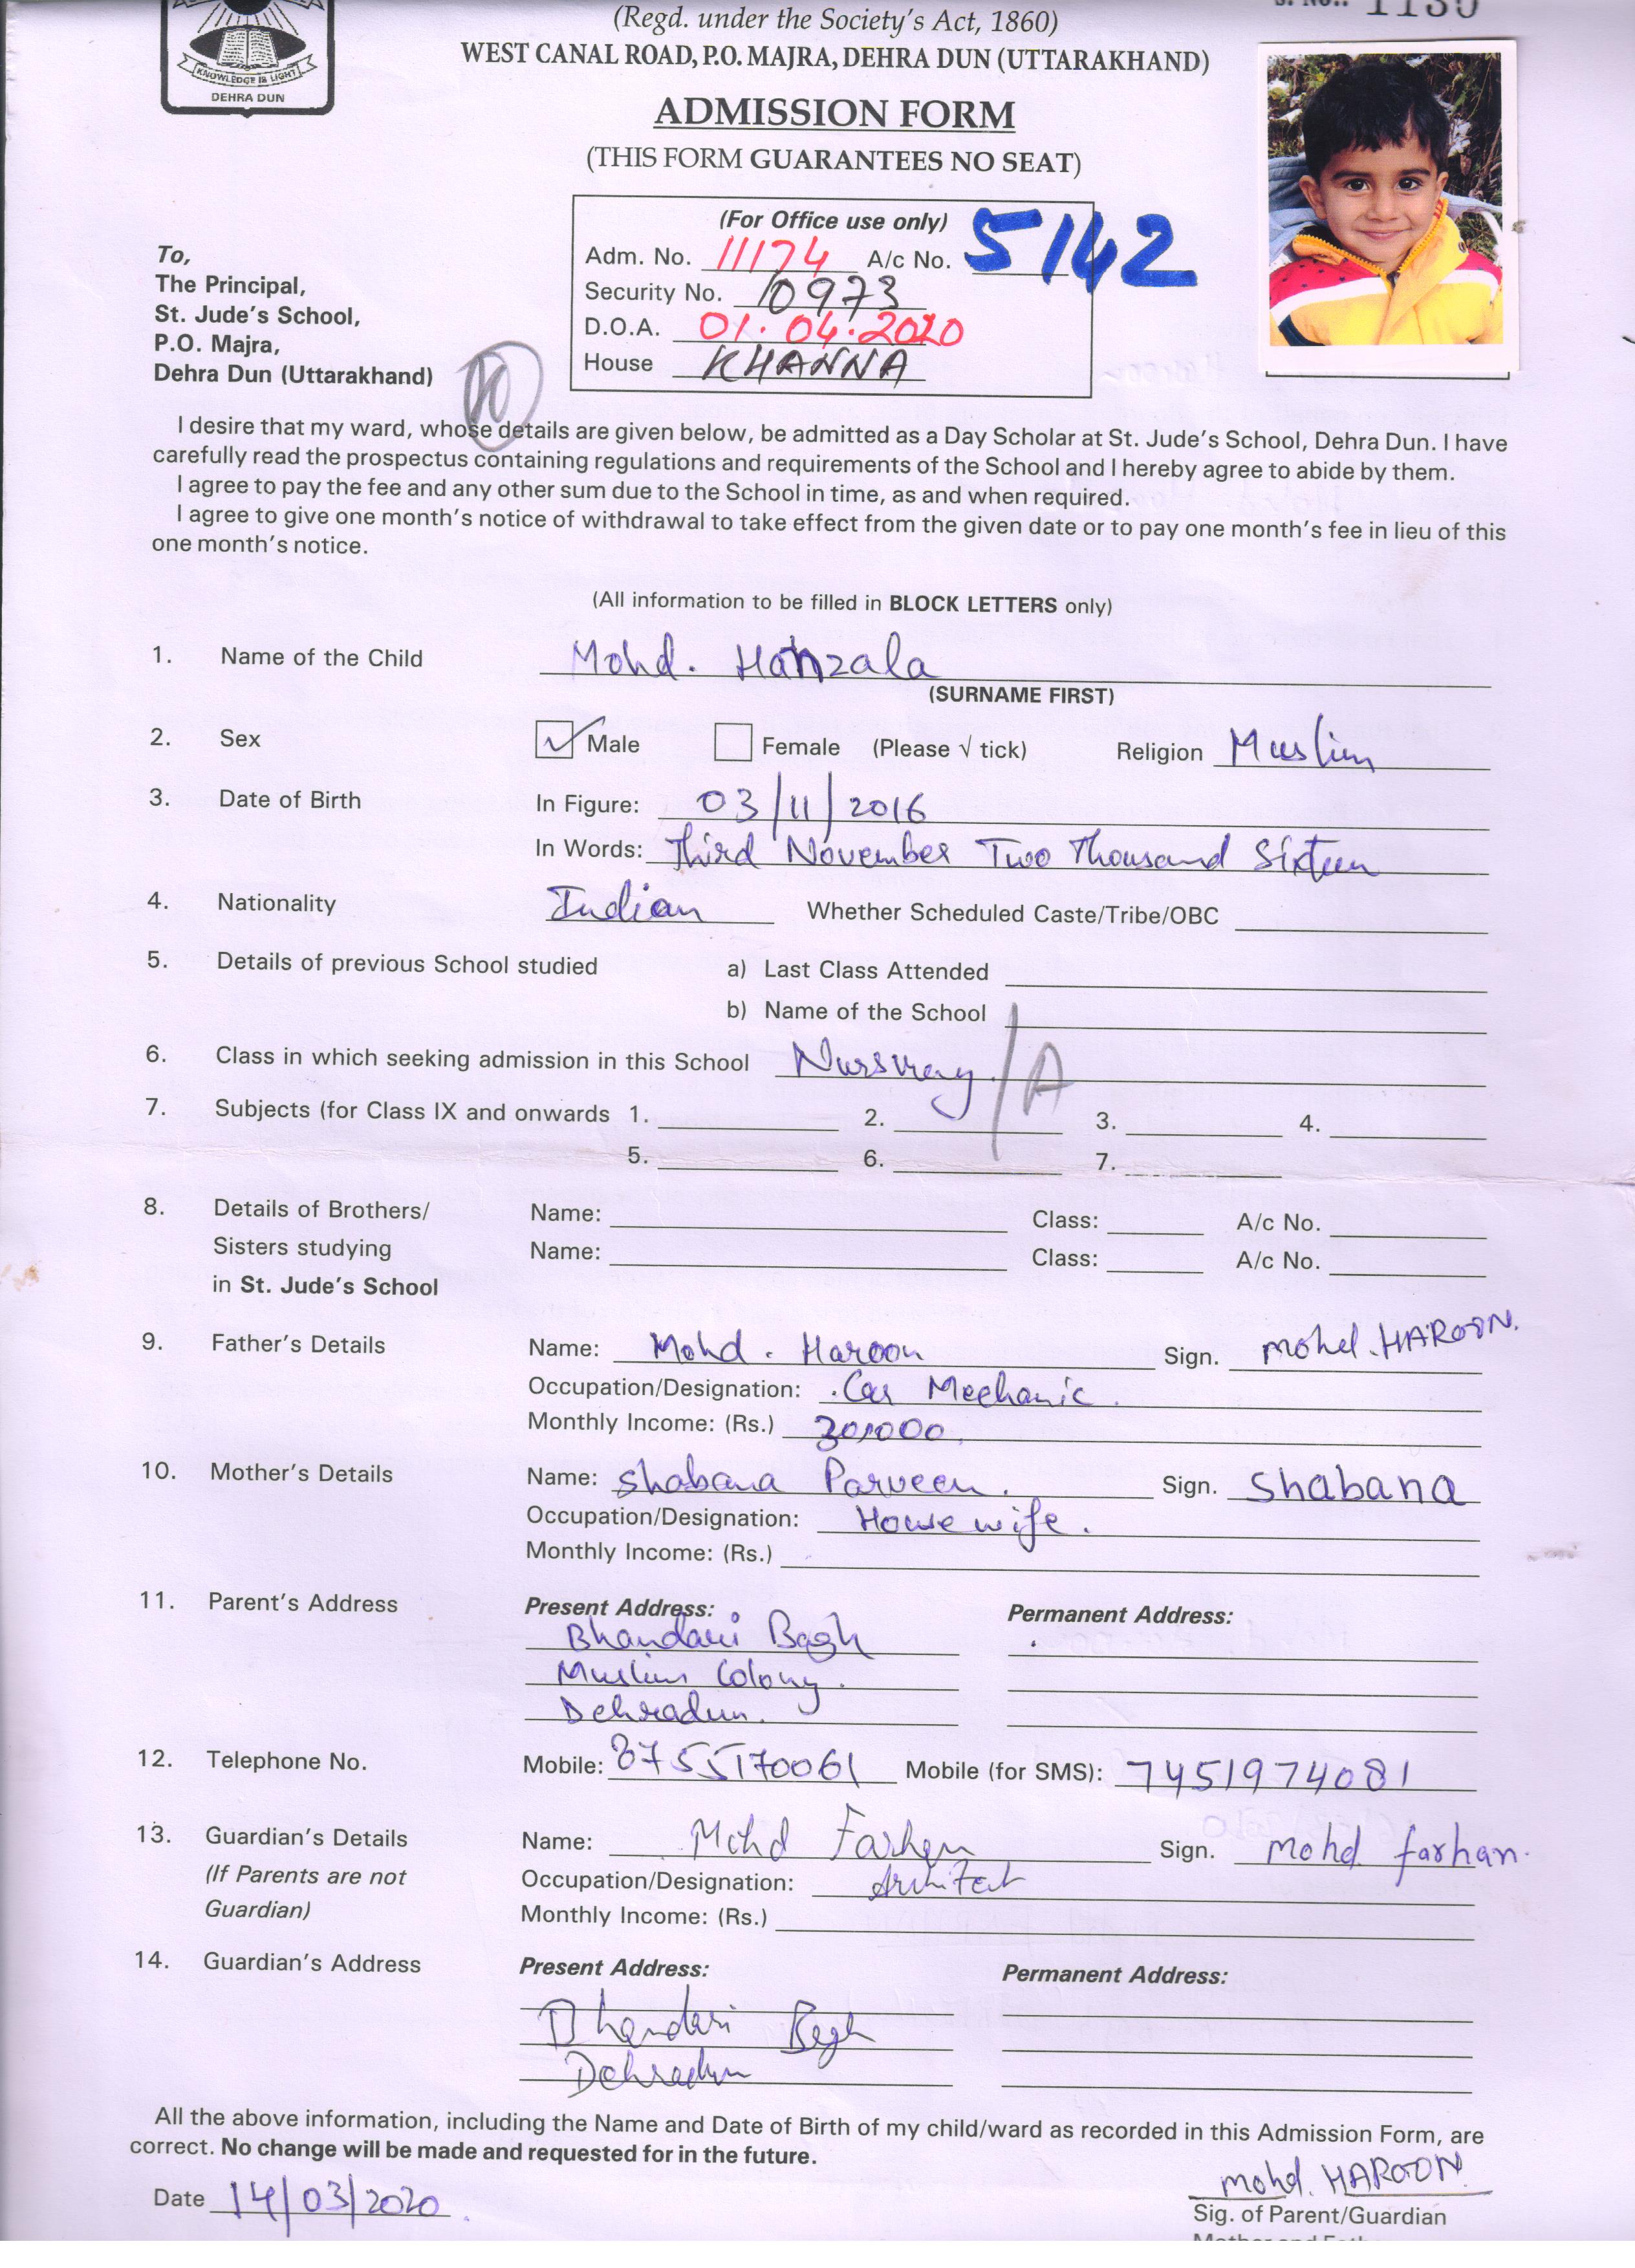 (Regd. under the Society's Act, 1860)
WEST CANAL ROAD, P.O. MAJRA, DEHRA DUN (UTTARAKHAND)
KNOWLEDGE IS LIGHT
DEHRA DUN
ADMISSION FORM
(THIS FORM GUARANTEES NO SEAT)
(For Office use only)
Adm. No. 11174 A/c No. 5142
Security No. 10973
D.O.A. 01.04.2020
House KHANNA
To,
The Principal,
St. Jude's School,
P.O. Majra,
Dehra Dun (Uttarakhand)
I desire that my ward, whose details are given below, be admitted as a Day Scholar at St. Jude's School, Dehra Dun. I have
carefully read the prospectus containing regulations and requirements of the School and I hereby agree to abide by them.
I agree to pay the fee and any other sum due to the School in time, as and when required.
I agree to give one month's notice of withdrawal to take effect from the given date or to pay one month's fee in lieu of this
one month's notice.
(All information to be filled in BLOCK LETTERS only)
1. Name of the Child Mohd. Hanzala
(SURNAME FIRST)
2. Sex Male Female (Please √ tick) Religion Muslim
3. Date of Birth In Figure: 03/11/2016
In Words: Third November Two Thousand Sixteen
4. Nationality Indian Whether Scheduled Caste/Tribe/OBC
5. Details of previous School studied a) Last Class Attended
b) Name of the School
6. Class in which seeking admission in this School Nursury /A
7. Subjects (for Class IX and onwards 1. 2. 3. 4.
5. 6. 7.
8. Details of Brothers/ Name: Class: A/c No.
Sisters studying Name: Class: A/c No.
in St. Jude's School
9. Father's Details Name: Mohd. Haroon Sign. mohd. HAROON.
Occupation/Designation: Car Mechanic.
Monthly Income: (Rs.) 30,000
10. Mother's Details Name: Shabana Parveen. Sign. Shabana
Occupation/Designation: House wife.
Monthly Income: (Rs.)
11. Parent's Address Present Address: Permanent Address:
Bhandari Bagh
Muslim Colony.
Dehradun.
12. Telephone No. Mobile: 8755170061 Mobile (for SMS): 7451974081
13. Guardian's Details Name: Mohd Farhan Sign. Mohd farhan.
(If Parents are not Occupation/Designation: Architect
Guardian) Monthly Income: (Rs.)
14. Guardian's Address Present Address: Permanent Address:
Bhandari Bagh
Dehradun
All the above information, including the Name and Date of Birth of my child/ward as recorded in this Admission Form, are
correct. No change will be made and requested for in the future.
mohd. HAROON
Date 14/03/2020
Sig. of Parent/Guardian